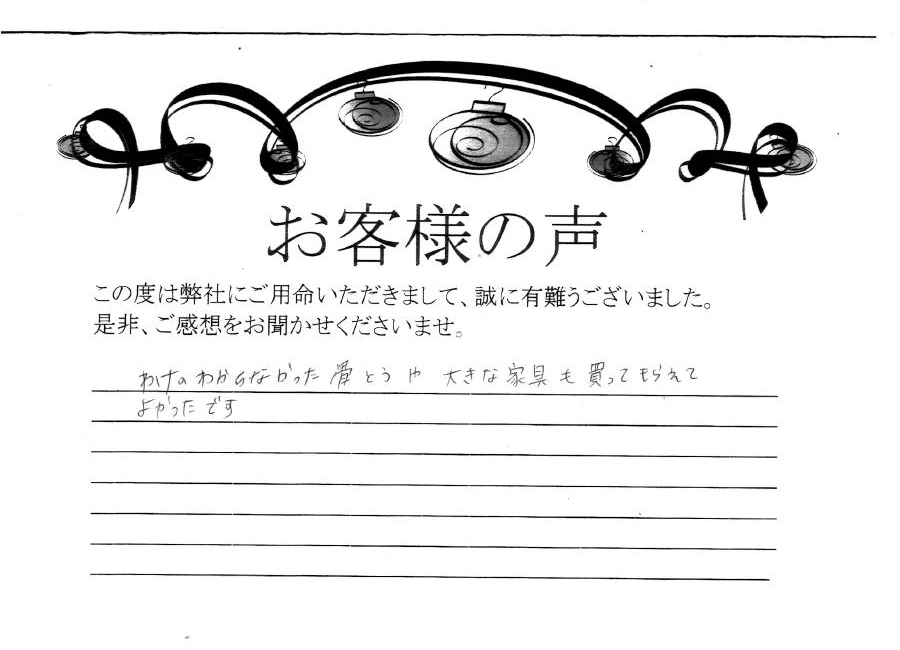 お客様の声
この度は弊社にご用命いただきまして、誠に有難うございました。
是非、ご感想をお聞かせくださいませ。
わけのわからなかった骨とうや 大きな家具も買ってもらえて
よかったです